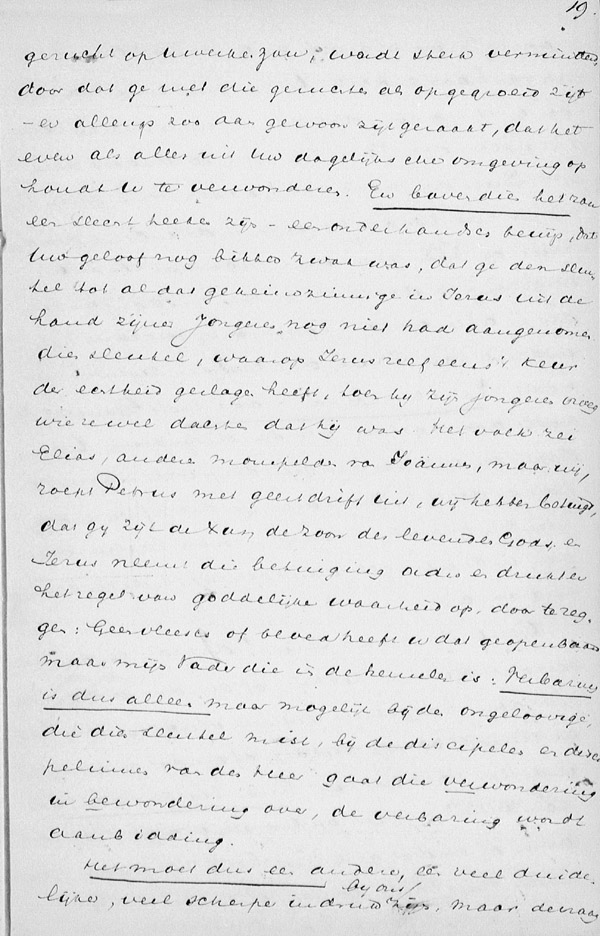 19.
gerucht op U werken zou, wordt sterk verminderd,
door dat ge met die geruchten als opgegroeid zijt
en allengs zoo aan gewoon zijt geraakt, dat het
even als alles uit Uw dagelijksche omgeving op
houdt U te verwonderen. En bovendien het zou
een slecht teeken zijn – een onderhandsch bewijs, dat
Uw geloof nog bitter zwak was, dat ge den sleu-
tel tot al dat geheimzinnige in Jezus uit de
hand zijner Jongeren nog niet had aangenomen
dien sleutel, waarop Jezus zelf eens 't keur
der echtheid geslagen heeft, toen hij zijn jongeren vroeg
wie ze wel dachten dat hij was. Het volk zei
Elias, andere mompelden van Joännes, maar wij,
roept Petrus met geestdrift uit, wij hebben betuigd,
dat gij zijt de Xus, de zoon des levenden Gods. en
Jezus neemt die betuiging aan en drukt er
het zegel van goddelijke waarheid op, door te zeg-
gen: Geen vleesch of bloed heeft u dat geopenbaard
maar mijn Vader die in de hemelen is: Verbazing
is dus alleen maar mogelijk bij den ongeloovige,
die dien sleutel mist, bij de discipelen en disci-
pelinnen van den Heer gaat die verwondering
in bewondering over, de verbazing wordt
aanbidding.
Het moet dus een andere, een veel duide-
lijker, veel scherper indruk bij ons zijn, maar de vraag